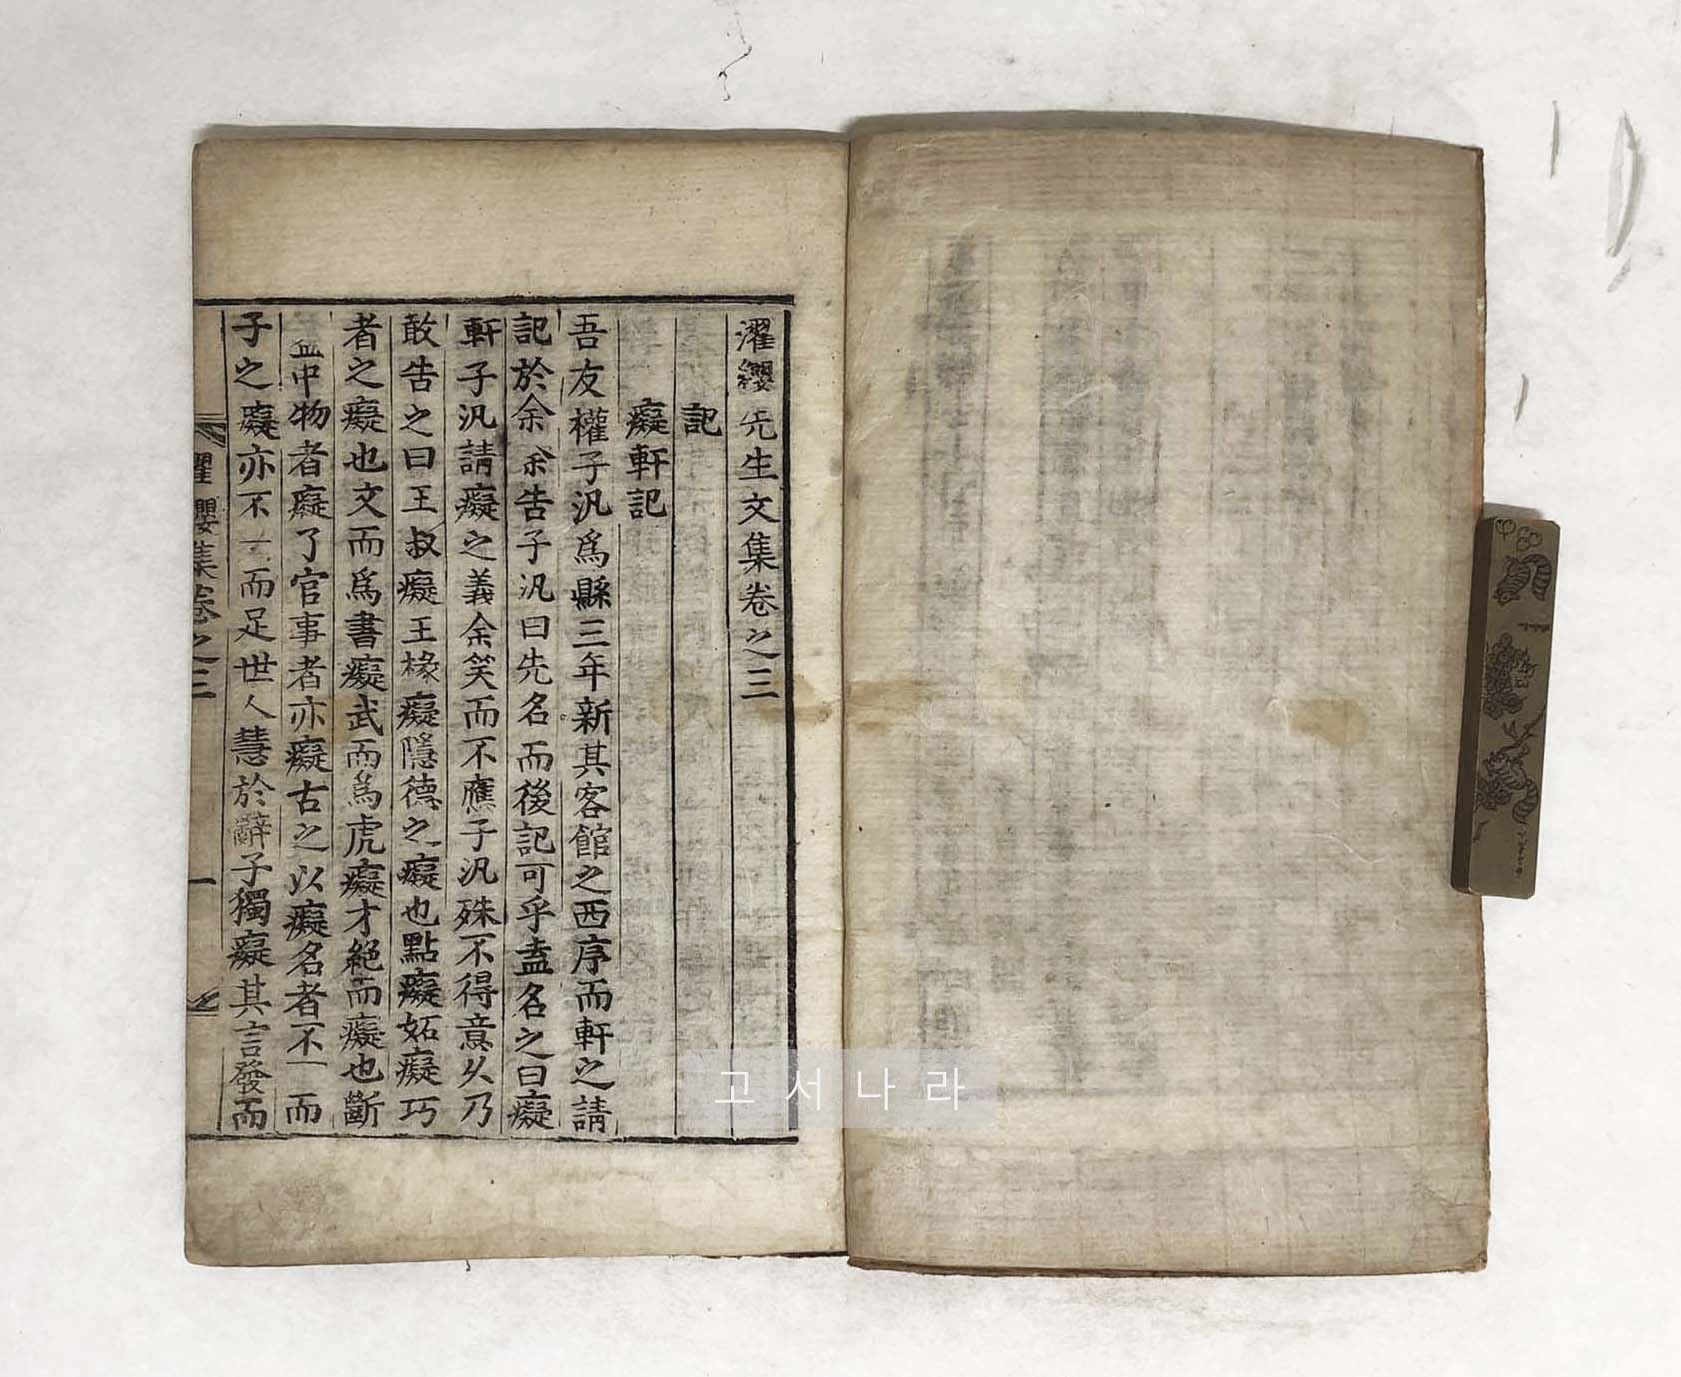 濯纓先生文集卷之三
記
癡軒記
吾友權子汎爲縣三年新其客館之西序而軒之請
記於余余告子汎曰先名而後記可乎盍名之曰癡
軒子汎請癡之義余笑而不應子汎殊不得意久乃
敢告之曰王叔癡王椽癡隱德之癡也點癡妬癡巧
者之癡也文而爲書癡武而爲虎癡才絕而癡也斷
盃中物者癡了官事者亦癡古之以癡名者不一而
子之癡亦不一而足世人慧於辭子獨癡其言發而
濯纓集卷之三
一
고서나라